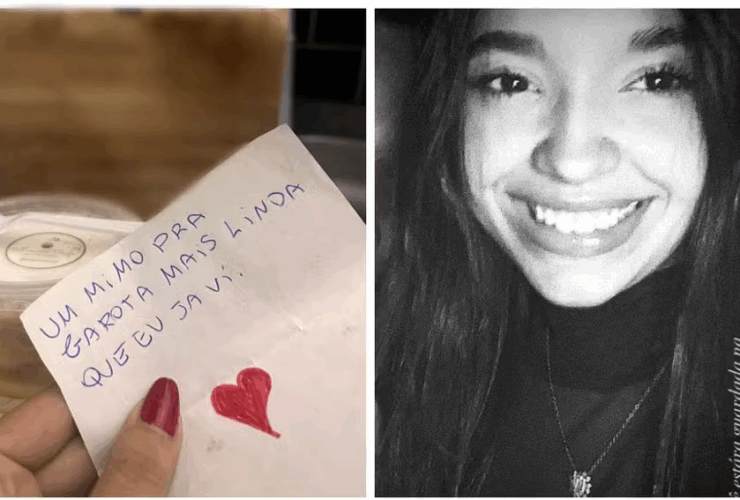 UM MIMO PRA
GAROTA MAIS LINDA
QUE EU JA Vi.
guardada na